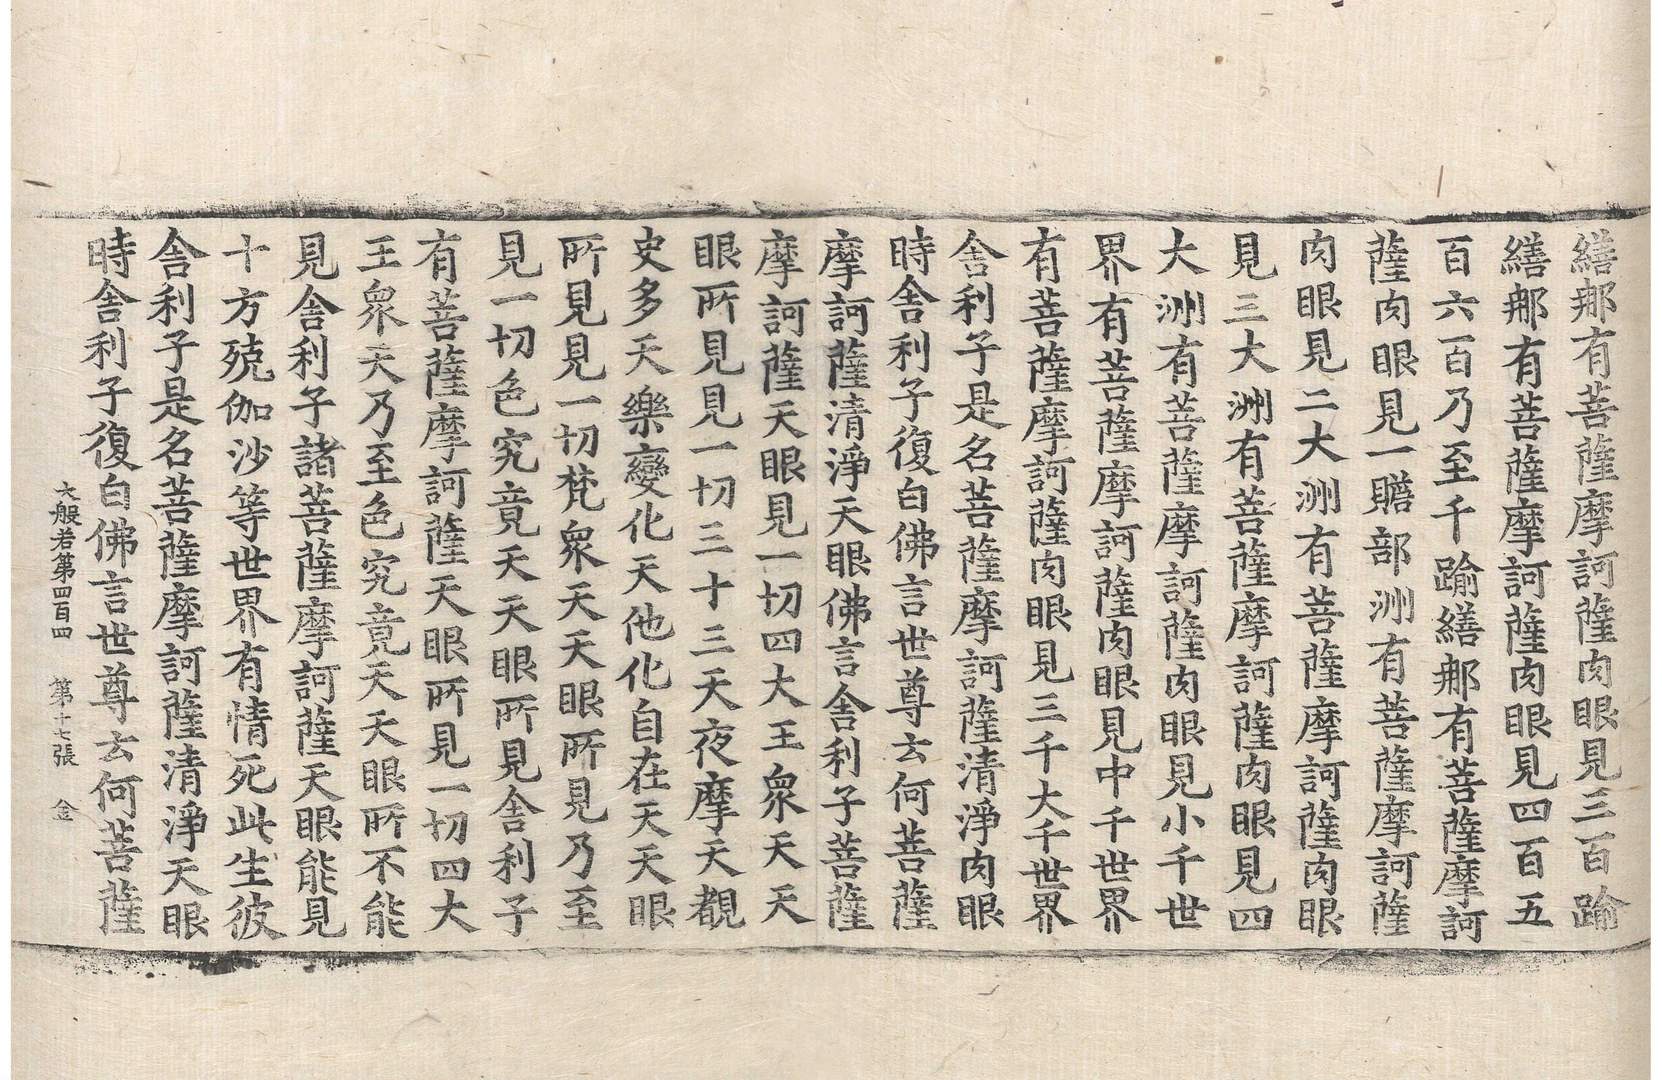 繕那有菩薩摩訶薩肉眼見三百踰
繕那有菩薩摩訶薩肉眼見四百五
百六百乃至千踰繕那有菩薩摩訶
薩肉眼見一贍部洲有菩薩摩訶薩
肉眼見二大洲有菩薩摩訶薩肉眼
見三大洲有菩薩摩訶薩肉眼見四
大洲有菩薩摩訶薩肉眼見小千世
界有菩薩摩訶薩肉眼見中千世界
有菩薩摩訶薩肉眼見三千大千世界
舍利子是名菩薩摩訶薩清淨肉眼
時舍利子復白佛言世尊云何菩薩
摩訶薩清淨天眼佛言舍利子菩薩
摩訶薩天眼見一切四大王衆天天
眼所見見一切三十三天夜摩天覩
史多天樂變化天他化自在天天眼
所見見一切梵衆天天眼所見乃至
見一切色究竟天天眼所見舍利子
有菩薩摩訶薩天眼所見一切四大
王衆天乃至色究竟天天眼所不能
見舍利子諸菩薩摩訶薩天眼能見
十方殑伽沙等世界有情死此生彼
舍利子是名菩薩摩訶薩清淨天眼
時舍利子復白佛言世尊云何菩薩
大般若第四百四 第十七張 金